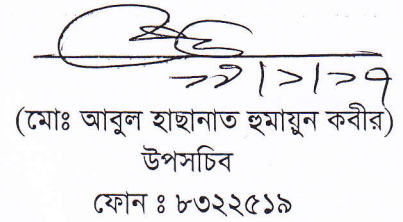 ১৯।১।১৭
(মোঃ আবুল হাছানাত হুমায়ুন কবীর)
উপসচিব
ফোন ঃ ৮৩২২৫১৯